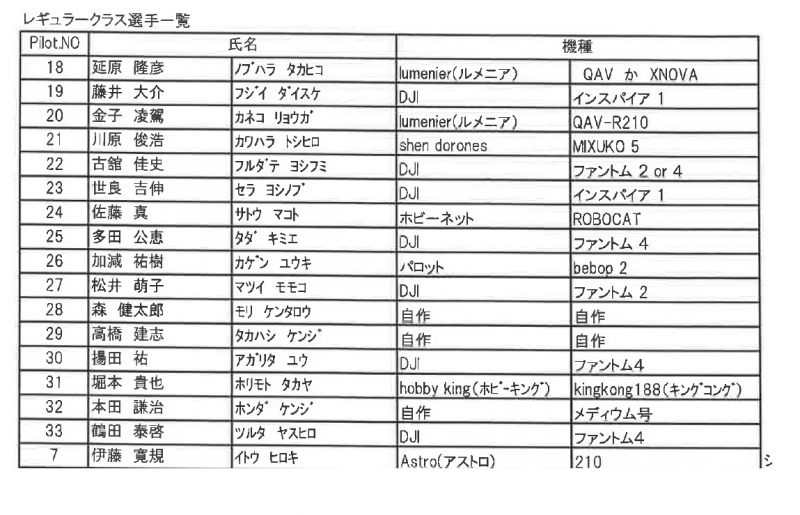 レギュラークラス選手一覧
Pilot.NO 氏名 機種
18 延原 隆彦 ノブハラ タカヒコ lumenier(ルメニア) QAV か XNOVA
19 藤井 大介 フジイ ダイスケ DJI インスパイア 1
20 金子 凌駕 カネコ リョウガ lumenier(ルメニア) QAV-R210
21 川原 俊浩 カワハラ トシヒロ shen dorones MIXUKO 5
22 古舘 佳史 フルダテ ヨシフミ DJI ファントム 2 or 4
23 世良 吉伸 セラ ヨシノブ DJI インスパイア 1
24 佐藤 真 サトウ マコト ホビーネット ROBOCAT
25 多田 公恵 タダ キミエ DJI ファントム 4
26 加減 祐樹 カゲン ユウキ パロット bebop 2
27 松井 萌子 マツイ モモコ DJI ファントム 2
28 森 健太郎 モリ ケンタロウ 自作 自作
29 高橋 建志 タカハシ ケンジ 自作 自作
30 揚田 祐 アガリタ ユウ DJI ファントム4
31 堀本 貴也 ホリモト タカヤ hobby king(ホビーキング) kingkong188(キングコング)
32 本田 謙治 ホンダ ケンジ 自作 メディウム号
33 鶴田 泰啓 ツルタ ヤスヒロ DJI ファントム4
7 伊藤 寛規 イトウ ヒロキ Astro(アストロ) 210 シ